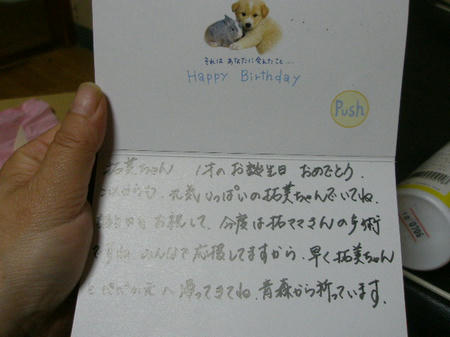 それは あなたに会えたこと…
Happy Birthday
Push
拓美ちゃん 1才のお誕生日 おめでとう。
これからも、元気いっぱいの拓美ちゃんでいてね。
お祝して、今度は拓ママさんの手術
みんなで応援してますから、早く拓美ちゃん
元へ帰ってきてね。青森から祈っています。